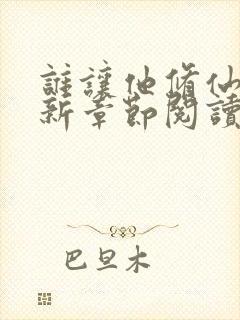 誰讓他修仙
新章節閱讀
巴旦木